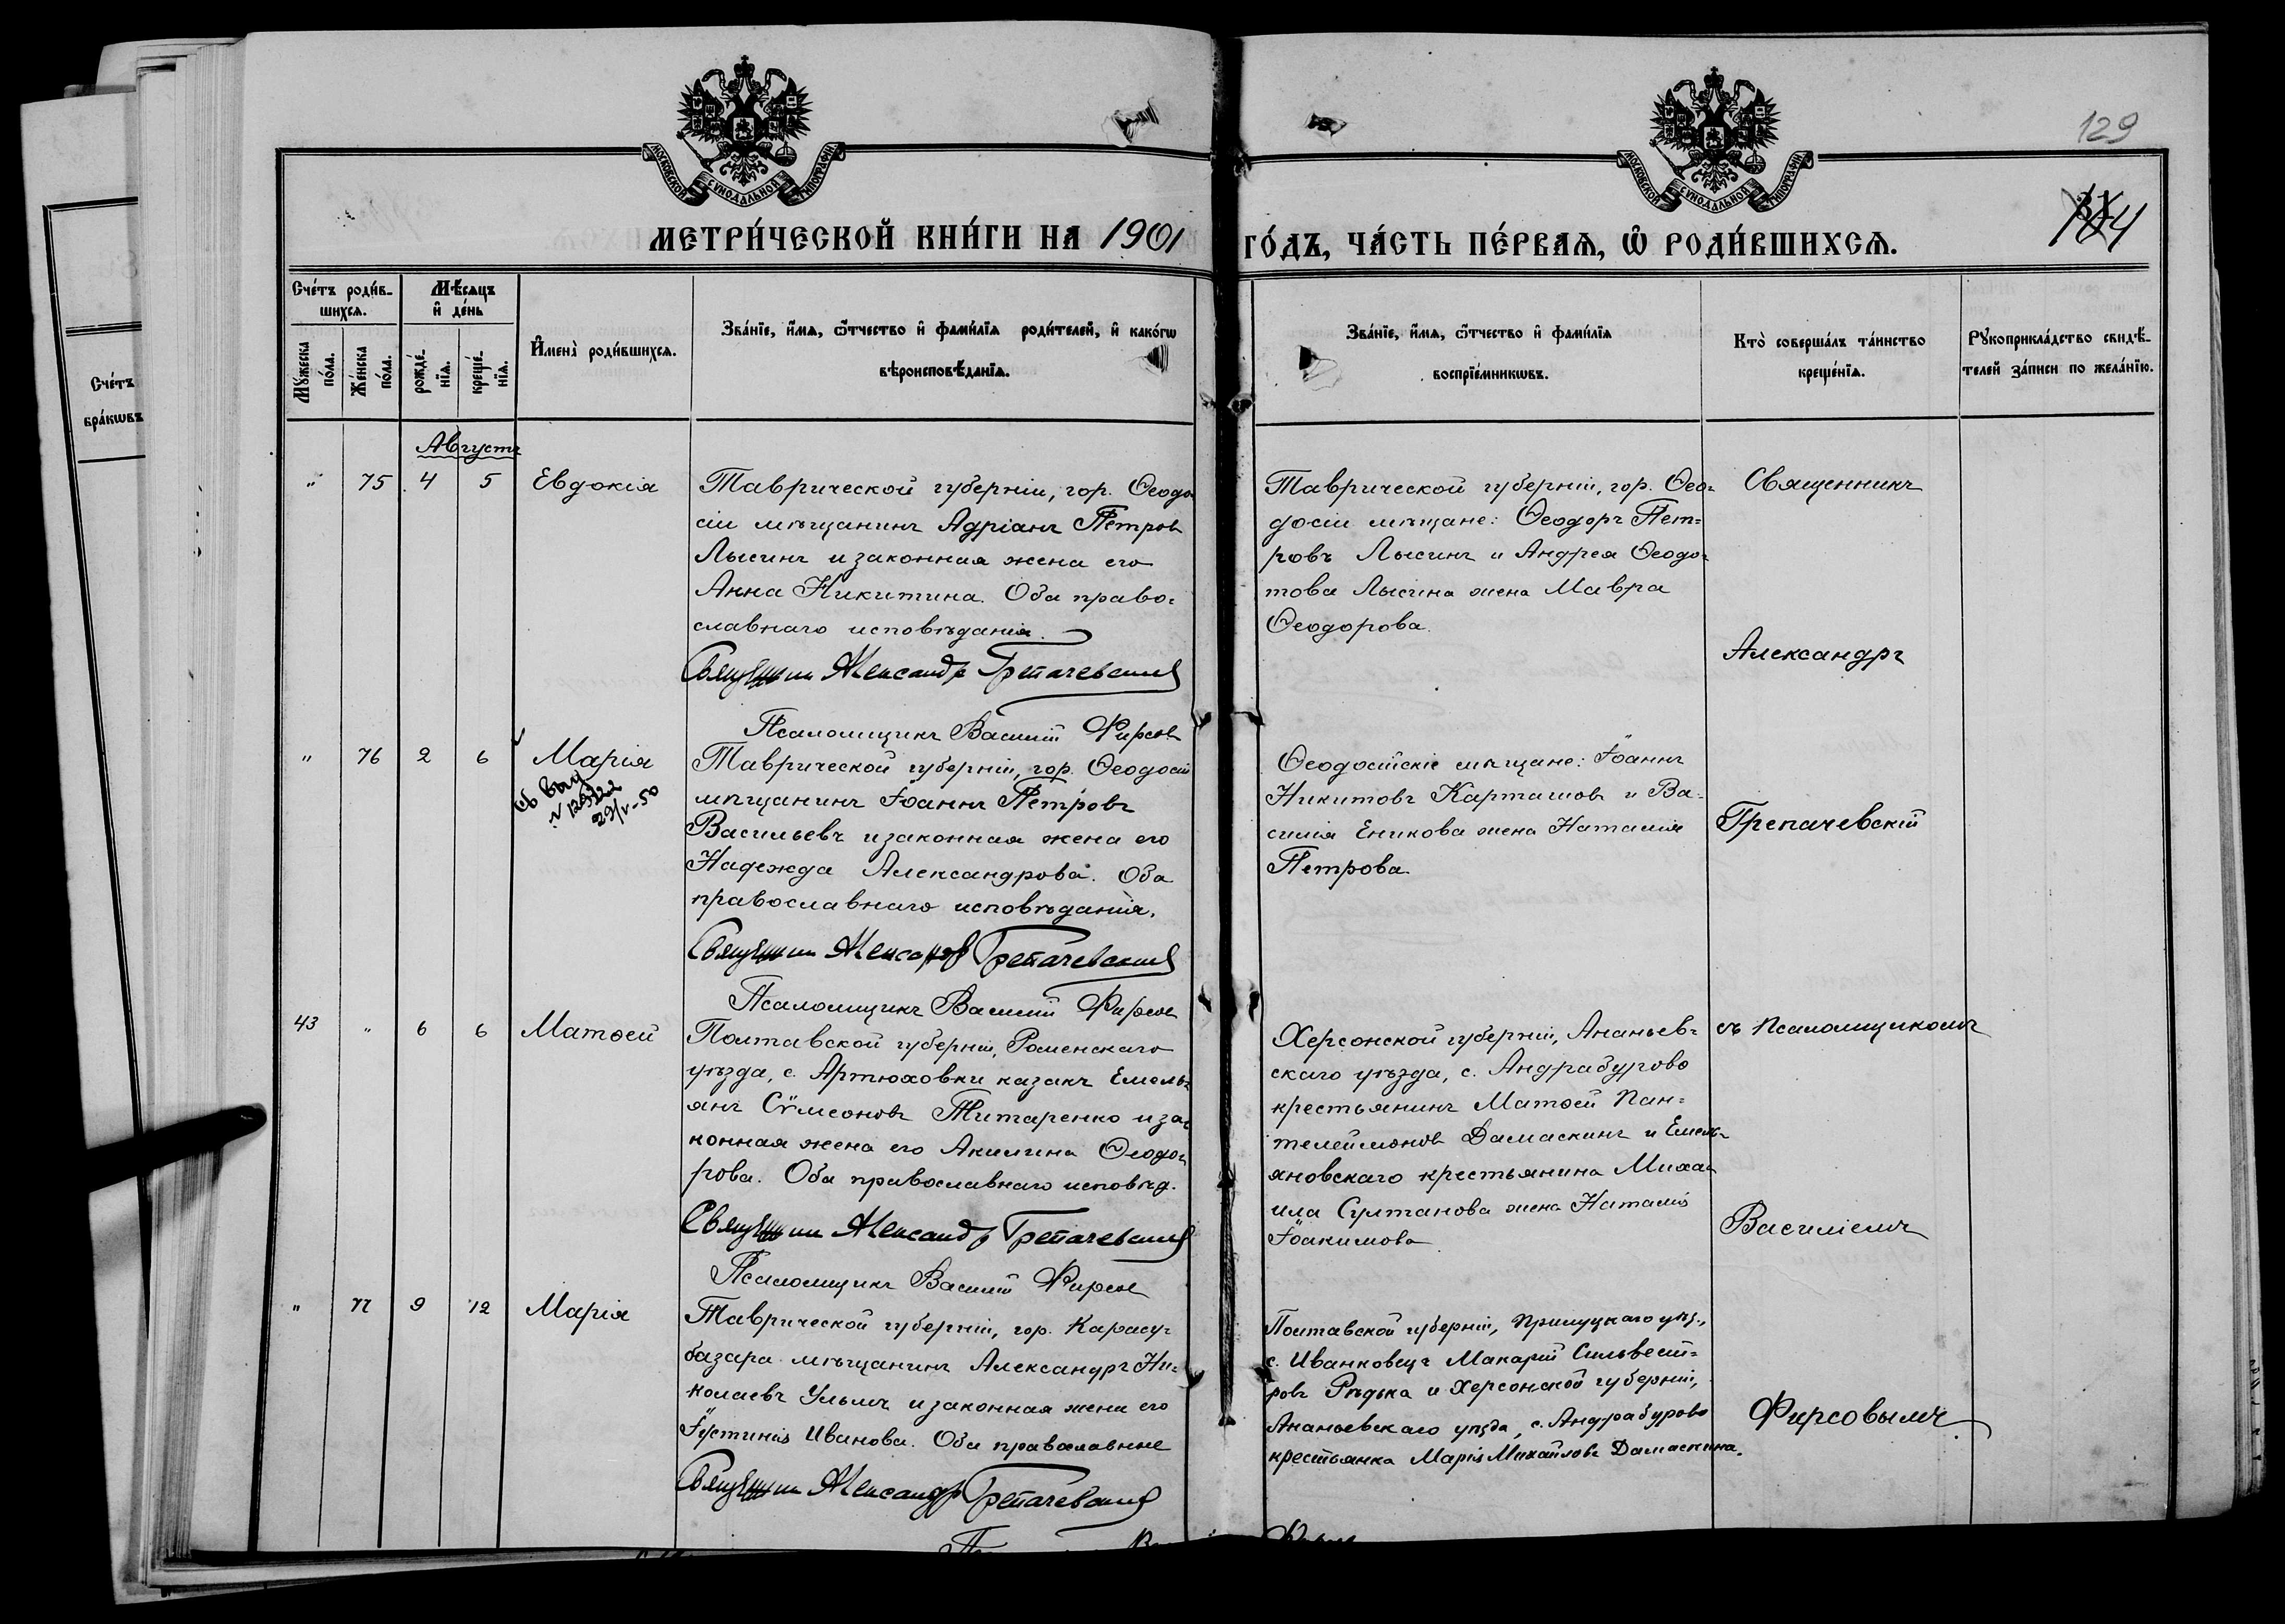 МОСКОВСКОЙ СѴНОДАЛЬНОЙ ТИПОГРАФІИ
МОСКОВСКОЙ СѴНОДАЛЬНОЙ ТИПОГРАФІИ
129
МЕТРИ́ЧЕСКОЙ КНИ́ГИ НА 1901
ГО́ДЪ, ЧА́СТЬ ПЕ́РВАѦ, Ѡ҆ РОДИ́ВШИХСѦ.
Сче́тъ
бра́кѡвъ
Сче́тъ роди́в-
шихсѧ.
Мꙋ́жеска
по́ла.
Же́нска
по́ла.
Мѣ́сѧцъ
и҆ де́нь
рожде́-
нїѧ.
креще́-
нїѧ.
И҆мена̀ роди́вшихсѧ.
Зва́нїе, и҆́мѧ, ѻ҆́тчество и҆ фами́лїѧ роди́телей, и҆ како́гѡ
вѣроисповѣ́данїѧ.
Зва́нїе, и҆́мѧ, ѻ҆́тчество и҆ фами́лїѧ
воспрїе́мникѡвъ.
Кто̀ соверша́лъ та́инство
креще́нїѧ.
Рꙋкоприкла́дство свидѣ́-
телей за́писи по жела́нїю.
Августъ
" 75 4 5 Евдокія
Таврической губерніи, гор. Ѳеодо-
сіи мѣщанинъ Адріанъ Петров
Лысинъ и законная жена его
Анна Никитина. Оба право-
славнаго исповѣданія.
Священникъ Александръ Грепачевскій
Псаломщикъ Василій Фирсов
Таврической губерніи, гор. Ѳео-
досіи мѣщане: Ѳеодоръ Пет-
ровъ Лысинъ и Андрея Ѳеодо-
това Лысина жена Мавра
Ѳеодорова.
Священникъ
Александръ
" 76 2 6 Марія
29/V-50
Таврической губерніи, гор. Ѳеодосіи
мѣщанинъ Іоаннъ Петровъ
Васильевъ и законная жена его
Надежда Александрова. Оба
православнаго исповѣданія.
Священникъ Александръ Грепачевскій
Псаломщикъ Василій Фирсов
Ѳеодосійскіе мѣщане: Іоаннъ
Никитовъ Карташов и Ва-
силія Еникова жена Наталія
Петрова.
Грепачевскій
43 " 6 6 Матѳей
Полтавской губерніи, Роменскаго
уѣзда, с. Артюховки казакъ Емель-
янъ Сѵмеоновъ Титаренко и за-
конная жена его Акилина Ѳеодо-
рова. Оба православнаго исповѣд.
Священникъ Александръ Грепачевскій
Псаломщикъ Василій Фирсов
Херсонской губерніи, Ананьев-
скаго уѣзда, с. Андрабурово
крестьянинъ Матѳей Пан-
телеймонов Дамаскинъ и Емель-
яновскаго крестьянина Миха-
ила Султанова жена Наталія
Іоакимова
съ псаломщикомъ
Василіемъ
" 77 9 12 Марія
Таврической губерніи, гор. Карасу-
базара мѣщанинъ Александръ Ни-
колаевъ Ульмъ и законная жена его
Іустинія Иванова. Оба православные
Священникъ Александръ Грепачевскій
Полтавской губерніи, Прилуцкаго уѣз.,
с. Иванковецъ Макарій Сильвест-
ровъ Рѣдька и Херсонской губерніи,
Ананьевскаго уѣзда, с. Андрабурово
крестьянка Марія Михайлова Дамаскина.
Фирсовымъ